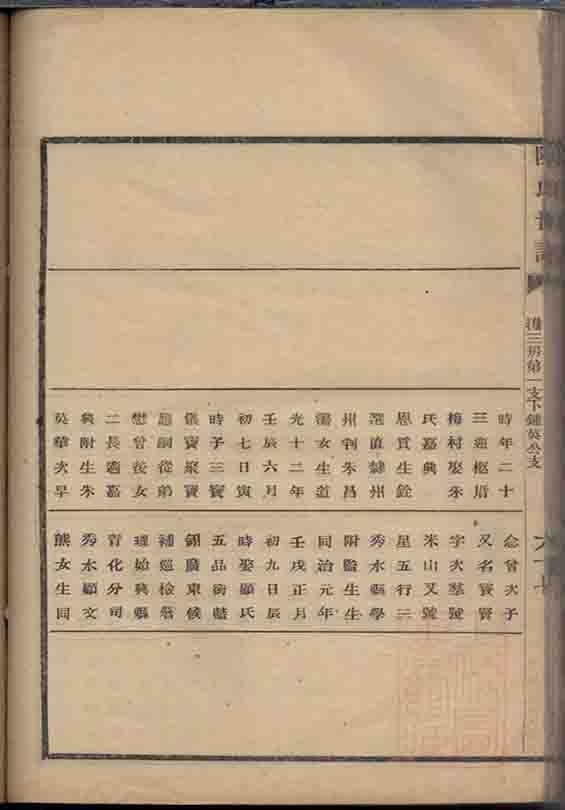 譜
三房第一支下鍾英公支
時年二十
三遊柩厝
梅村娶朱
氏嘉興
恩貢生銓
選直隸州
州判朱昌
女生道
光十二年
壬辰六月
初七日寅
時子三寶
儀寶粲寶
嗣從弟
懋曾後女
二長適嘉
興附生朱
英華次早
念曾次子
又名寶賢
字次羣號
米山又號
星五行三
秀水縣學
附監生生
同治元年
壬戌正月
初九日辰
時娶顧氏
五品銜藍
翎廣東候
補巡檢署
理始興縣
青化分司
秀水顧文
熊女生同